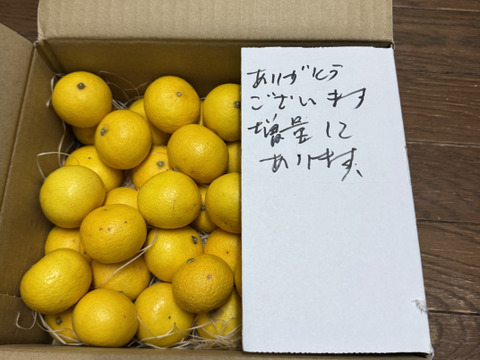 ありがとう
ございます
増量して
あります、